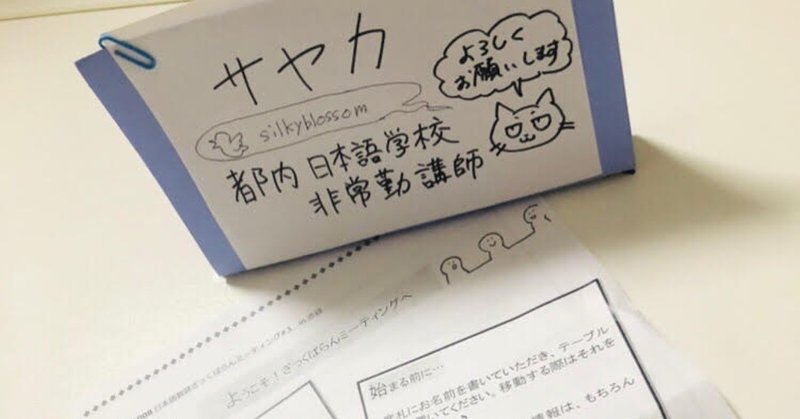 サヤカ
silkyblossom
よろしく
お願いします
都内 日本語学校
非常勤講師
ようこそ!ざっくばらんミーティングへ
始まる前に…
札にお名前を書いていただき、テーブル
ください。移動する際はそれを
情報は、もちろん